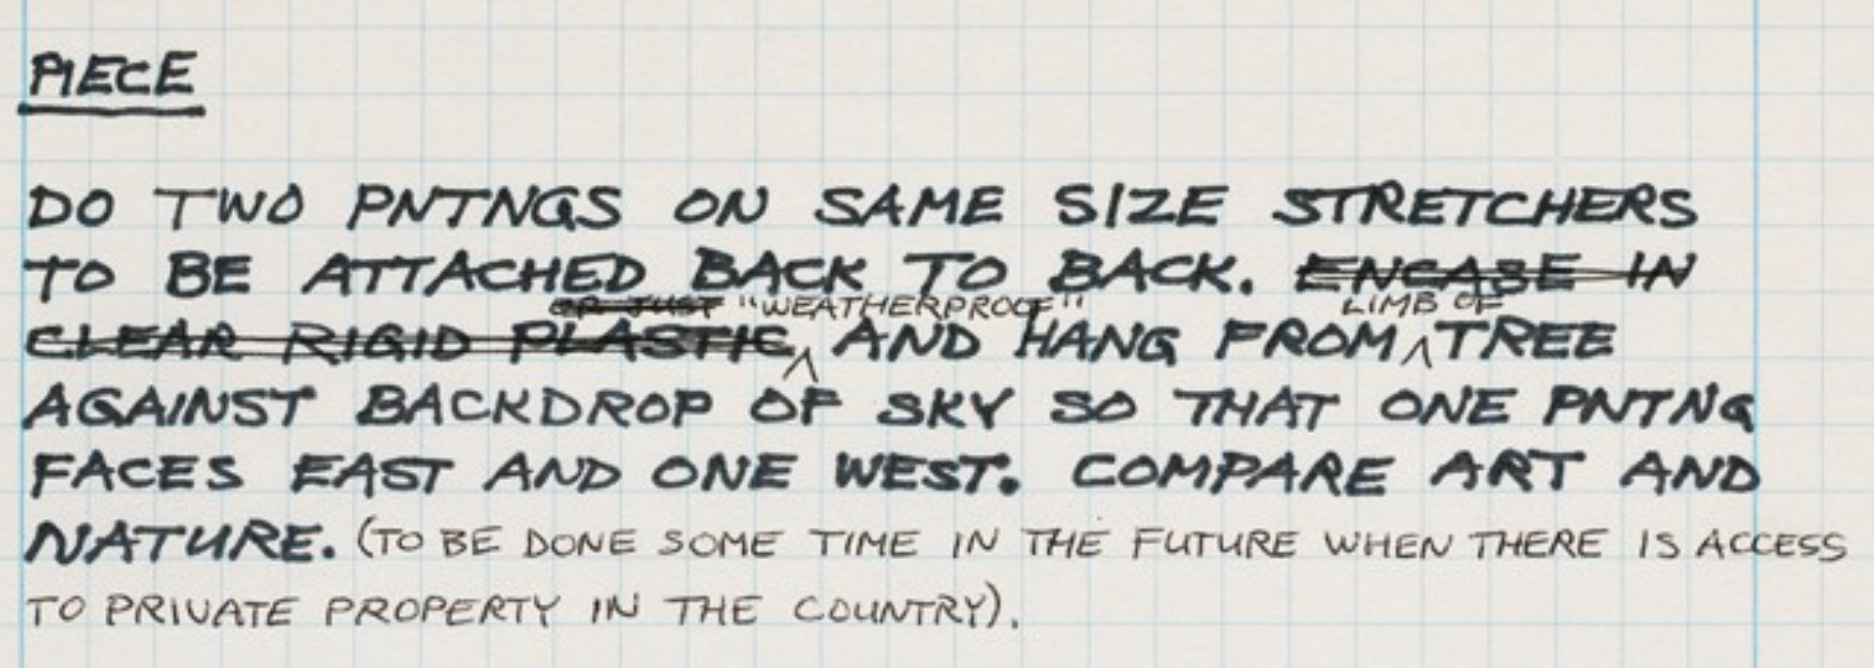 PIECE
DO TWO PNTNGS ON SAME SIZE STRETCHERS
TO BE ATTACHED BACK TO BACK. ENCASE IN
OR JUST "WEATHERPROOF" LIMB OF
CLEAR RIGID PLASTIC, AND HANG FROM TREE
AGAINST BACKDROP OF SKY SO THAT ONE PNTNG
FACES EAST AND ONE WEST. COMPARE ART AND
NATURE. (TO BE DONE SOME TIME IN THE FUTURE WHEN THERE IS ACCESS
TO PRIVATE PROPERTY IN THE COUNTRY).